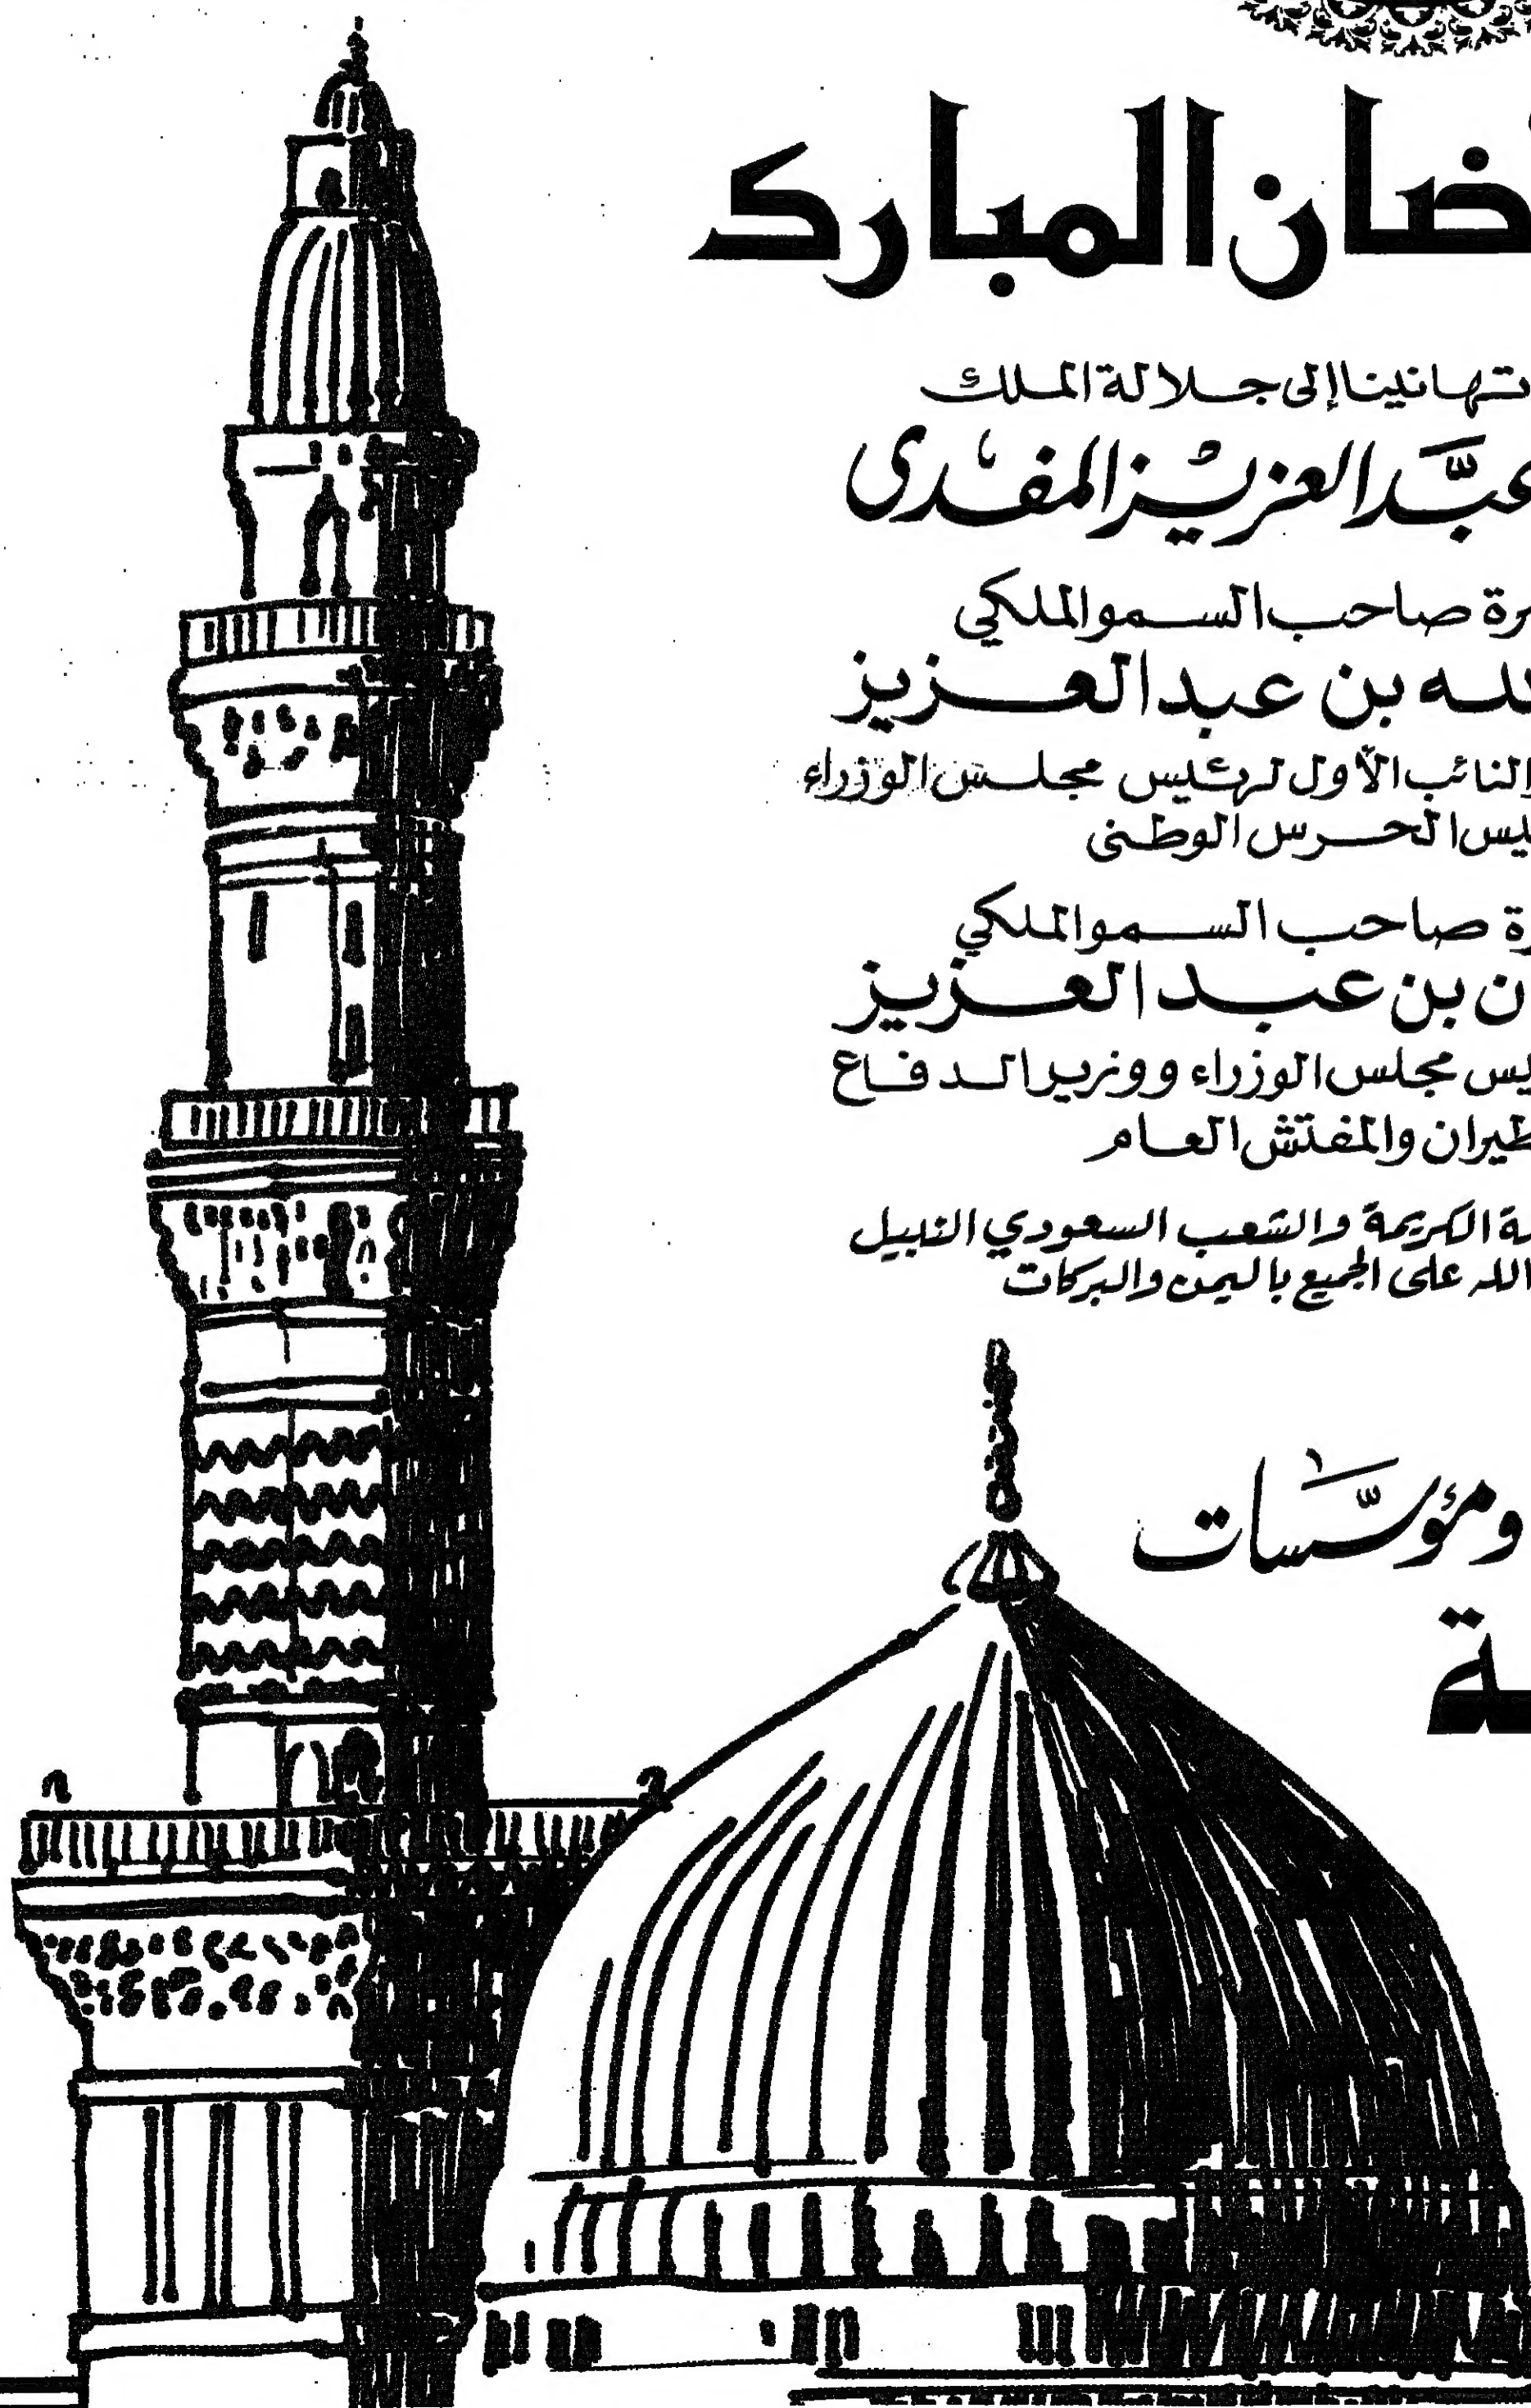 ضان المبارك
تهانينا إلى جلالة الملك
عبد العزيز المفدى
رة صاحب السمو الملكي
لله بن عبد العزيز
النائب الأول لرئيس مجلس الوزراء
يس الحرس الوطني
رة صاحب السمو الملكي
ن بن عبد العزيز
يس مجلس الوزراء ووزير الدفاع
طيران والمفتش العام
ة الكريمة والشعب السعودي النبيل
الله على الجميع باليمن والبركات
ومؤسسات
ة